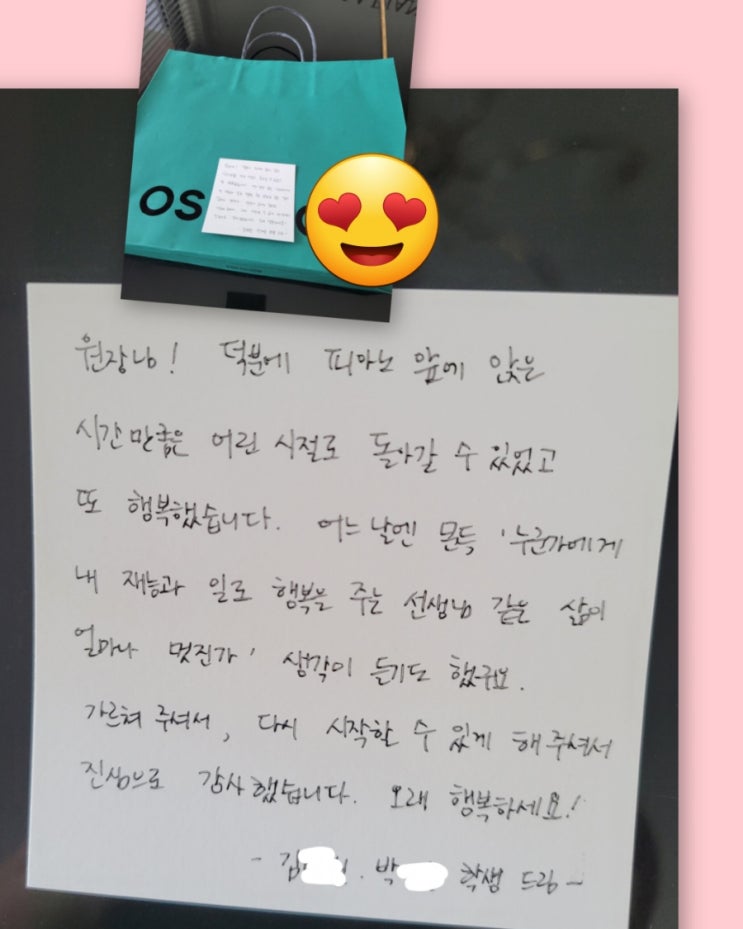 OS
원장님! 덕분에 피아노 앞에 앉은
시간만큼은 어린 시절로 돌아갈 수 있었고
또 행복했습니다. 어느날엔 문득 '누군가에게
내 재능과 일로 행복을 주는 선생님 같은 삶이
얼마나 멋진가' 생각이 들기도 했구요.
가르쳐 주셔서, 다시 시작할 수 있게 해주셔서
진심으로 감사했습니다. 오래 행복하세요!
- 김 . 박 학생 드림 -